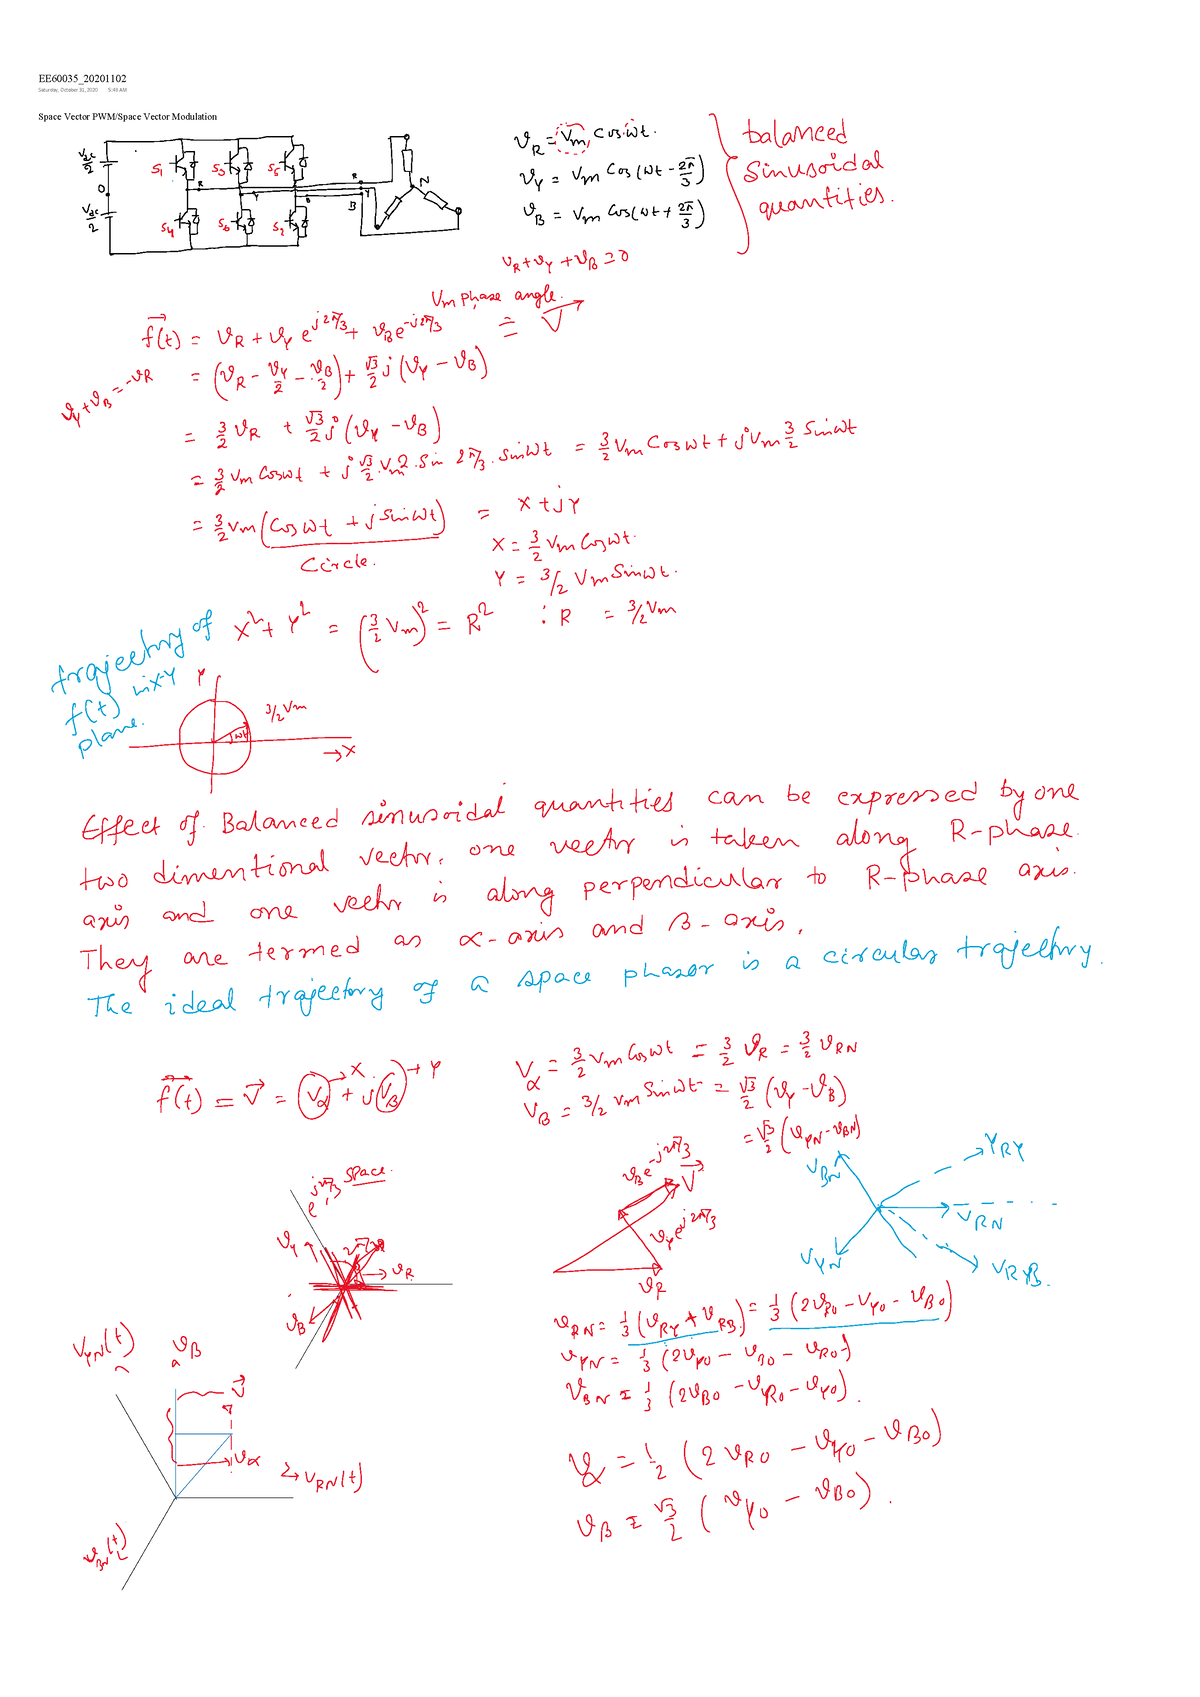 EE60035_20201102
Saturday, October 31, 2020 5:48 AM
Space Vector PWM/Space Vector Modulation
Vdc/2
O
Vdc/2
S1 S3 S5
S4 S6 S2
R Y B
R Y B N
v_R = Vm Cos ωt.
v_Y = Vm Cos(ωt - 2π/3)
v_B = Vm Cos(ωt + 2π/3)
balanced
Sinusoidal
quantities.
v_R + v_Y + v_B = 0
Vm phase angle.
f(t) = v_R + v_Y e^{j2π/3} + v_B e^{-j2π/3} ≡ V
v_Y + v_B = -v_R
= (v_R - v_Y/2 - v_B/2) + √3/2 j (v_Y - v_B)
= 3/2 v_R + √3/2 j (v_Y - v_B)
= 3/2 Vm Cosωt + j √3/2 . Vm 2 . Sin 2π/3 . Sinωt = 3/2 Vm Cosωt + j Vm 3/2 Sinωt
= 3/2 Vm (Cosωt + j Sinωt) = X + jY
Circle.
X = 3/2 Vm Cosωt.
Y = 3/2 Vm Sinωt.
trajectory of
f(t) in X-Y
plane.
X² + Y² = (3/2 Vm)² = R² : R = 3/2 Vm
Y
3/2 Vm
ωt
→ X
Effect of Balanced sinusoidal quantities can be expressed by one
two dimentional vector. one vector is taken along R-phase.
axis and one vector is along perpendicular to R-phase axis.
They are termed as α-axis and β-axis.
The ideal trajectory of a space phasor is a circular trajectory.
f(t) = V = (Vα) → X + j(Vβ) → Y
Vα = 3/2 Vm Cosωt = 3/2 v_R = 3/2 v_RN
Vβ = 3/2 Vm Sinωt = √3/2 (v_Y - v_B)
= √3/2 (v_YN - v_BN)
e^{j2π/3} Space.
v_Y
v_R
v_B
v_B e^{-j2π/3}
V
v_Y e^{j2π/3}
v_R
V_BN
V_RY
V_RN
V_YN
V_RYB.
v_RN = 1/3 (v_RY + v_RB) = 1/3 (2v_RO - v_YO - v_BO)
v_YN = 1/3 (2v_YO - v_BO - v_RO)
v_BN = 1/3 (2v_BO - v_RO - v_YO).
V_YN(t)
v_β
V
v_α
→ v_RN(t)
v_BN(t)
v_α = 1/2 (2v_RO - v_YO - v_BO)
v_β = √3/2 (v_YO - v_BO).